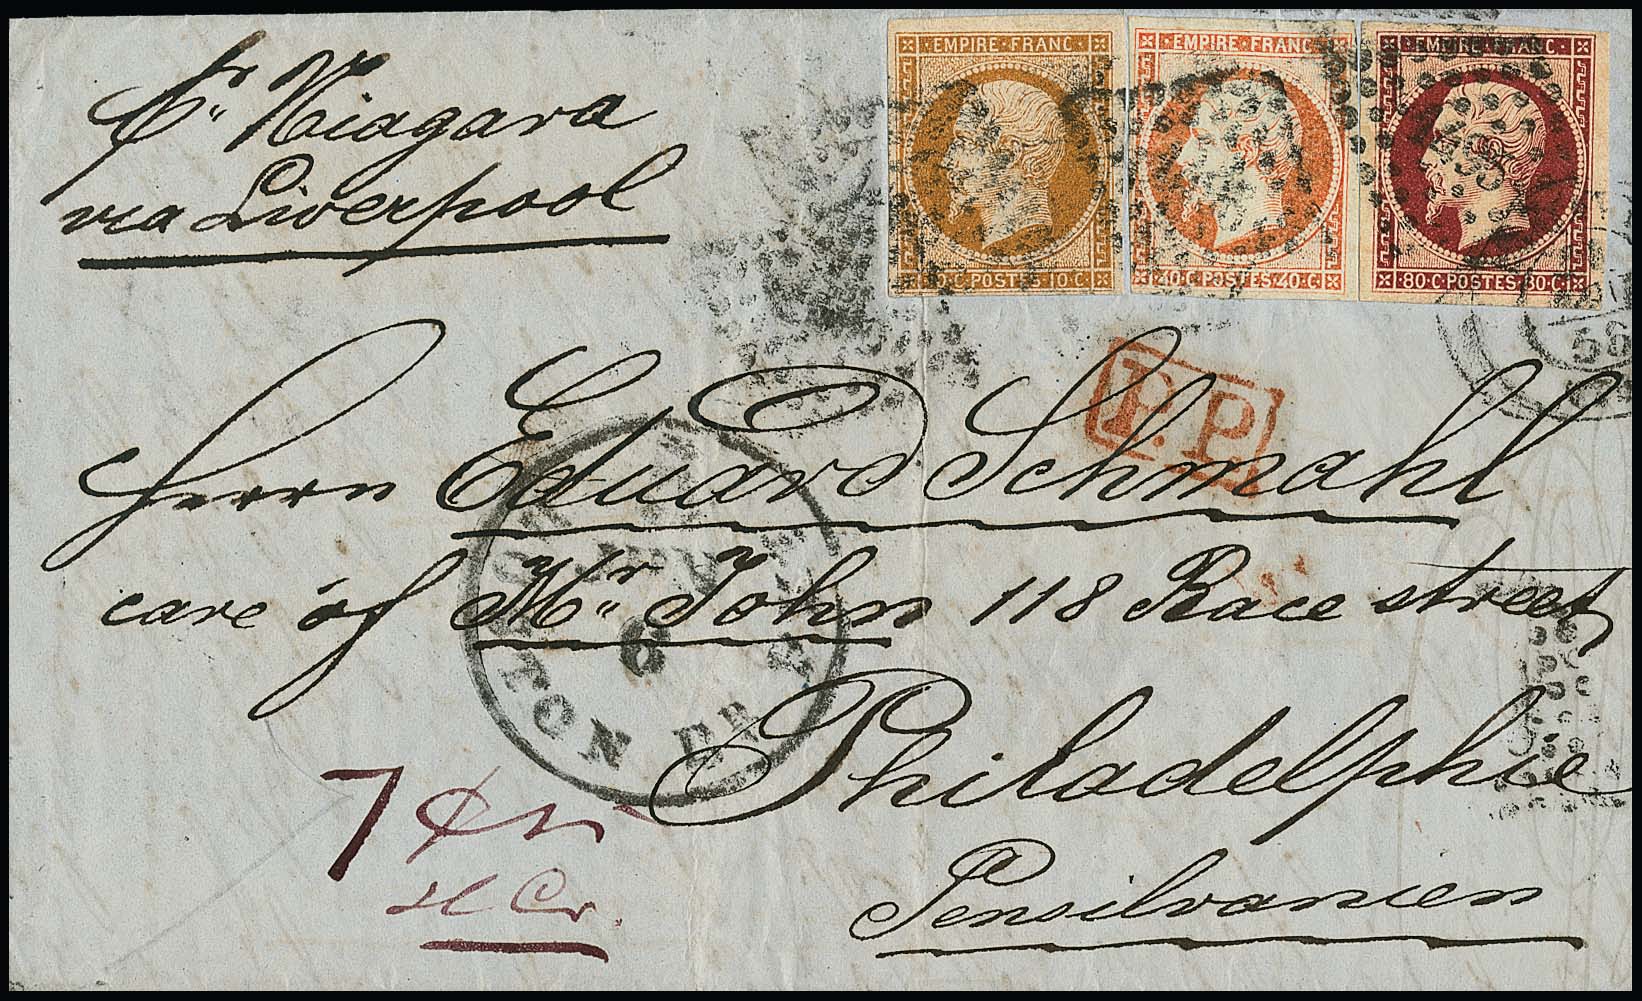 pr Niagara
via Liverpool
EMPIRE·FRANC·
POSTES·10·C
EMPIRE·FRANC·
40·C·POSTES·40·C
EMPIRE·FRANC·
80·C·POSTES·80·C
P.P.
Herrn Eduard Schmahl
care of Mr John 118 Race street
6
Philadelphie
Pensilvanien
7
Cr.